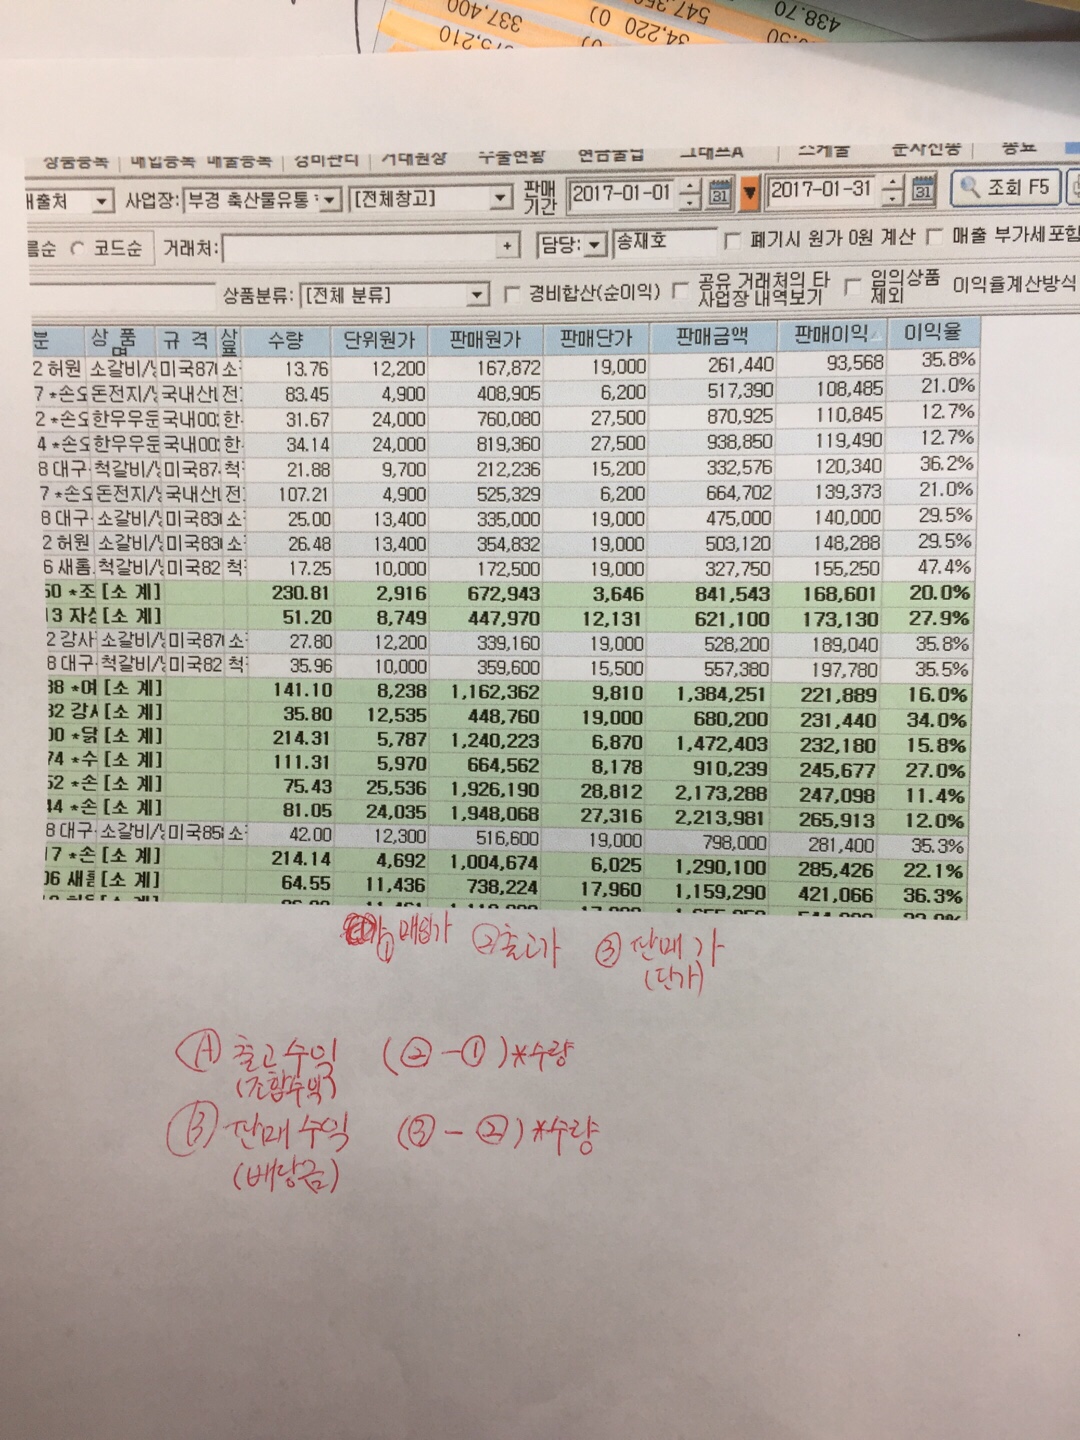 337,400
547,35
438.70
75,210
0)
34,220
0)
0.50
상품등록 매입등록 매출등록 경비관리 거래원장 수불현황 현금출납 그래프A 스케줄 문자전송 종료
매출처 사업장: 부경 축산물유통 [전체창고] 판매기간 2017-01-01 31 2017-01-31 31 조회 F5
름순 코드순 거래처: + 담당: 송재호 폐기시 원가 0원 계산 매출 부가세포함
상품분류: [전체 분류] 경비합산(순이익) 공유 거래처의 타사업장 내역보기 임의상품 제외 이익율계산방식
분 상 품 명 규 격 수량 단위원가 판매원가 판매단가 판매금액 판매이익 이익율
2 허원 소갈비/ 미국87 소 13.76 12,200 167,872 19,000 261,440 93,568 35.8%
7 *손 돈전지/ 국내산 전 83.45 4,900 408,905 6,200 517,390 108,485 21.0%
2 *손 한우우둔 국내00 한 31.67 24,000 760,080 27,500 870,925 110,845 12.7%
4 *손 한우우둔 국내00 한 34.14 24,000 819,360 27,500 938,850 119,490 12.7%
8 대구 척갈비/ 미국87 척 21.88 9,700 212,236 15,200 332,576 120,340 36.2%
7 *손 돈전지/ 국내산 전 107.21 4,900 525,329 6,200 664,702 139,373 21.0%
8 대구 소갈비/ 미국83 소 25.00 13,400 335,000 19,000 475,000 140,000 29.5%
2 허원 소갈비/ 미국83 소 26.48 13,400 354,832 19,000 503,120 148,288 29.5%
6 새홈 척갈비/ 미국82 척 17.25 10,000 172,500 19,000 327,750 155,250 47.4%
50 *조 [소 계] 230.81 2,916 672,943 3,646 841,543 168,601 20.0%
13 자성 [소 계] 51.20 8,749 447,970 12,131 621,100 173,130 27.9%
2 강사 소갈비/ 미국87 소 27.80 12,200 339,160 19,000 528,200 189,040 35.8%
8 대구 척갈비/ 미국82 척 35.96 10,000 359,600 15,500 557,380 197,780 35.5%
38 *여 [소 계] 141.10 8,238 1,162,362 9,810 1,384,251 221,889 16.0%
32 강사 [소 계] 35.80 12,535 448,760 19,000 680,200 231,440 34.0%
00 *닭 [소 계] 214.31 5,787 1,240,223 6,870 1,472,403 232,180 15.8%
74 *수 [소 계] 111.31 5,970 664,562 8,178 910,239 245,677 27.0%
52 *손 [소 계] 75.43 25,536 1,926,190 28,812 2,173,288 247,098 11.4%
44 *손 [소 계] 81.05 24,035 1,948,068 27,316 2,213,981 265,913 12.0%
8 대구 소갈비/ 미국85 소 42.00 12,300 516,600 19,000 798,000 281,400 35.3%
17 *손 [소 계] 214.14 4,692 1,004,674 6,025 1,290,100 285,426 22.1%
06 새홈 [소 계] 64.55 11,436 738,224 17,960 1,159,290 421,066 36.3%
① 매입가 ② 출고가 ③ 판매가
(단가)
Ⓐ 출고수익 (② - ①)*수량
(조합수익)
Ⓑ 판매수익 (③ - ②)*수량
(배당금)